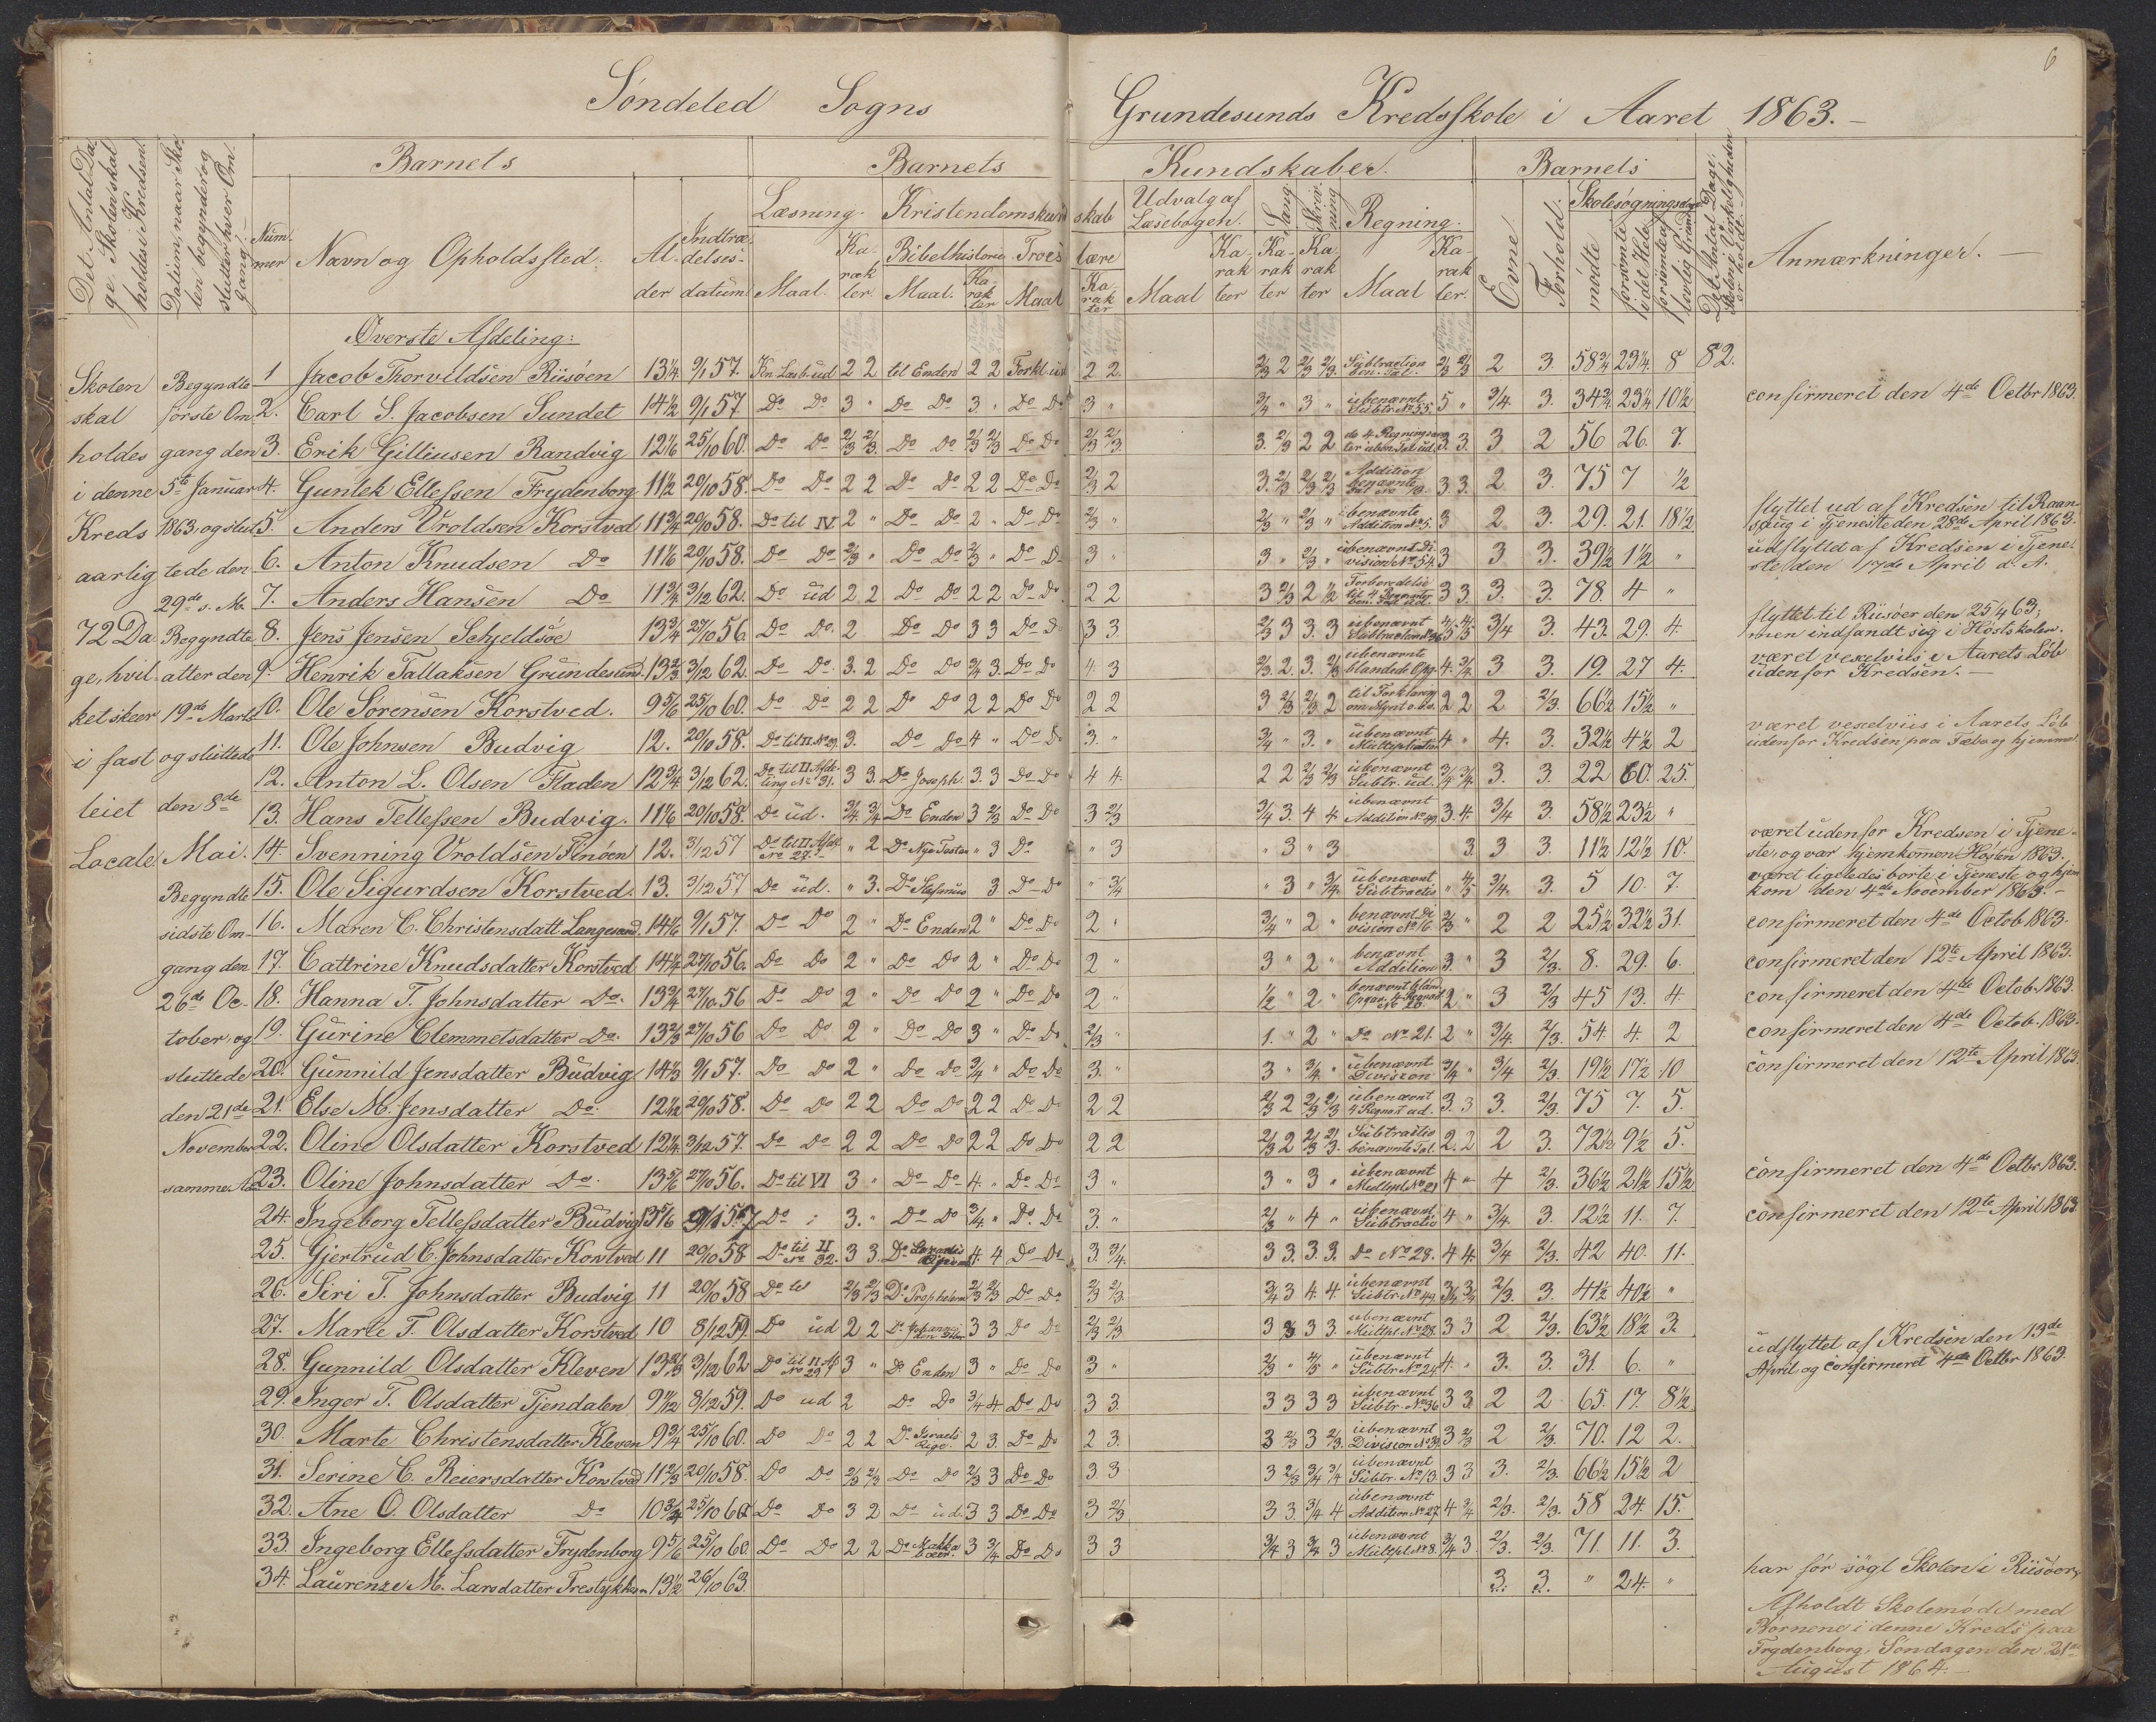 6
Søndeled Sogns Grundesunds Kredsskole i Aaret 1863.-
Det Antal Da-
ge Skolen skal
holdes i Kredsen.
Datum, naar Sko-
len begynder og
slutter hver Om-
gang.-
Barnets
Num-
mer
Navn og Opholdssted.
Al-
der
Indtræ-
delses-
datum.
Barnets Kundskaber.
Læsning.
Maal.
Ka-
rak
ter.
Kristendomskund skab
Bibelhistorie.
Maal.
Ka-
rak
ter
Troes lære
Maal
Ka-
rak
ter
Udvalg af
Læsebogen.
Maal
Ka-
rak
teer
Sang
Ka-
rak
ter
Skriv-
ning
Ka
rak
ter
Regning.
Maal
Ka-
rak
ter.
Barnets
Evne.
Forhold.
Skolesøgningsdage
mødte
forsømte
i det Hele
forsømte af
lovlig Grund
Det Antal Dage,
Skolen i Virkeligheden
er holdt.
Anmærkninger.-
Skolen
skal
holdes
i denne
Kreds
aarlig
72 Da-
ge, hvil-
ket skeer
i fast
leiet
Locale.
Begyndte
første Om-
gang den
5te Januar
1863, og slut-
tede den
29de s. M.
Begyndte
atter den
19de Marts
og sluttede
den 8de
Mai.
Begyndte
sidste Om-
gang den
26de Oc-
tober, og
sluttede
den 21de
November
samme Aar
Øverste Afdeling:
1 Jacob Thorvildsen Riisøen 13¼ 9/1 57. 2 2 til Enden 2 2 2 2. 2/3 2 2/3 2/3. Subtraction 2/3 2/3 2 3. 58¾ 23¼ 8 82.
2. Carl S. Jacobsen Sundet 14½ 9/1 57. Do Do 3 " Do Do 3 " Do Do 3 " ¾ " 3 " ubenævnt Subtr. No 55. 5 " ¾ 3. 34¾ 23¼ 10½ confirmeret den 4de Octbr 1863.
3. Erik Gilliusen Randvig 12⅙ 25/10 60. Do Do 2/3 2/3. Do Do 2/3 2/3 Do Do 2/3 2/3. 3. 2/3 2 2 3. 3. 3 2 56 26. 7.
4. Guntek Ellefsen Frydenborg 11½ 20/10 58. Do Do 2 2 Do Do 2 2 Do Do 2/3 2 3. 2/3 2/3 2/3 Addition benævnte 3 3. 2 3. 75 7 ½
5. Anders Vroldsen Korstved 11¾ 20/10 58. Do til IV 2 " Do Do 2 " Do Do 2/3 " 2/3 " 2/3 " ubenævnte Addition No 5. 3 2 3. 29. 21. 18½ flyttet ud af Kredsen til Raan-
saug i Tjeneste den 28de April 1863.
6. Anton Knudsen Do 11⅙ 20/10 58. Do Do 2/3 " Do Do 2/3 " Do Do 3 " 3 " 2/3 " ubenævnt Di-
vision No 54. 3 3 3. 39½ 1½ " udflyttet af Kredsen i Tjene-
ste den 17de April d. A.
7. Anders Hansen Do 11¾ 3/12 62. Do ud 2 2 Do Do 2 2 Do Do 2 2 3 2/3 2 ½ 3 3. 3. 3. 78. 4 "
8. Jens Jensen Schjeldsøe 13¾ 27/10 56. Do Do. 2 Do Do 3 3 Do Do 3 3. 2/3 3 3. 3 ubenævnt 4/5 4/5 ¾ 3. 43. 29. 4. flyttet til Riisøer den 25/4 63,
men indfandt sig i Høstskolen.
9. Henrik Tallaksen Grundesund. 13⅔ 3/12 62. Do Do. 3. 2 Do Do ¾ 3. Do Do 4. 3 2/3 2. 3. 2/3 ubenævnte blandede Opg. 4. ¾ 3 3. 19. 27 4. været vexelviis i Aarets Løb
udenfor Kredsen.-
10. Ole Sørensen Korstved. 9⅚ 25/10 60. Do Do 2 2 Do Do 2 2 Do Do 2 2 3 2/3 2/3 2 2 2 2 2/3. 66½ 15½ "
11. Ole Johnsen Budvig 12. 20/10 58. Do til II. No 29. 3. Do Do 4 " Do Do 3. " ¾ " 3. " ubenævnt Multiplication 4 " 4. 3. 32½ 4½ 2 været vexelviis i Aarets Løb
udenfor Kredsen paa og hjemme
12. Anton L. Olsen Fladen 12¾ 3/12 62. Do til II Afde-
ling No 31. 3 3. Do Joseph. 3. 3 Do Do 4 4. 2 2 2/3 2/3 ubenævnt Subtr. ud. ¾ ¾ 3. 3. 22 60. 25.
13. Hans Tellefsen Budvig. 11⅙ 20/10 58. Do ud. ¾ ¾ Do Enden 3 2/3 Do Do 3 2/3 ¾ 3. 4 4 ubenævnt Addition No 49. 3. 4. ¾ 3. 58½ 23½ "
14. Svenning Vroldsen Finøen 12. 3/12 57 Do til II Afd.
No 27.- " 2 Do Nye Testa " 3 Do " 3 " 3 " 3 3 3 3. 11½ 12½ 10. været udenfor Kredsen i Tjene-
ste, og var hjemkommen Høsten 1863.
15. Ole Sigurdsen Korstved. 13. 3/12 57 Do ud. " 3. Do Stefanus 3 Do Do " ¾ " 3 " ¾. ubenævnt Subtractio " 4/5 ¾. 3. 5 10. 7. været ligeledes borte i Tjeneste og hjem
kom den 4de November 1863.-
16. Maren C. Christensdatt. Langesand. 14⅙ 9/1 57. Do Do 2 " Do Enden 2 " Do Do 2 " ¾ " 2 " benævnt Di-
vision No 16. 2/3 " 2 2 25½ 32½ 31. confirmeret den 4de Octob 1863.
17. Cattrine Knudsdatter Korstved 14¼ 27/10 56. Do Do 2 " Do Do 2 " Do Do 2 " 3 " 2 " benævnt Addition 3. " 3 2/3. 8. 29. 6. confirmeret den 12te April 1863.
18. Hanna T. Johnsdatter Do. 13¾ 27/10 56 Do Do 2 " Do Do 2 " Do Do 2 " ½ " 2 " 2 " 3 2/3 45 13. 4. confirmeret den 4de Octob. 1863.
19. Gurine Clemmetsdatter Do. 13⅔ 27/10 56 Do Do 2 " Do Do 3 " Do Do 2/3 " 1. " 2 " Do No 21. 2 " ¾. 2/3. 54. 4. 2 confirmeret den 4de Octob. 1863.
20. Gunnild Jensdatter Budvig. 14⅓ 9/1 57. Do Do 2 " Do Do ¾ " Do Do 3. " 3 " ¾. " ubenævnt Division ¾ " ¾ 2/3. 19½ 17½ 10 confirmeret den 12te April 1863.
21. Else M. Jensdatter Do. 12½ 20/10 58. Do Do 2 2 Do Do 2 2 Do Do 2 2 2/3 2 2/3 2/3 ubenævnt 3. 3 3. 2/3. 75 7. 5.
22. Oline Olsdatter Korstved 12¼ 3/12 57. Do Do 2 2 Do Do 2 2 Do Do 2 2 2/3 2 2/3 2/3. Subtractio benævnte Tal. 2. 2 2 3. 72½ 9½ 5.
23. Oline Johnsdatter Do. 13⅚ 27/10 56. Do til VI 3 " Do Do 4. " Do Do 3 " 3 " 3 " ubenævnt Multipl. No 21 4 " 4 2/3. 36½ 21½ 15½ confirmeret den 4de Octbr 1863.
24. Ingeborg Tellefsdatter Budvig 13⅚ 9/1 57 Do 3. " Do Do ¾ " Do. Do 3. " 2/3 " 4 " ubenævnt Subtractio 4 " ¾ 3. 12½ 11. 7. confirmeret den 12te April 1863.
25. Gjertrud C. Johnsdatter Korstved 11 20/10 58 Do til II No 32. 3 3. Do 4 4 Do Do 3. ¾. 3 3. 3. 3. Do No 28. 4 4. ¾ 2/3. 42 40. 11.
26. Siri T. Johnsdatter Budvig 11 20/10 58 Do til 2/3 2/3 Do Propheterne 2/3 2/3 Do Do 2/3 2/3. ¾ 3 4. 4. ubenævnt Subtr. No 49. ¾ ¾ 2/3. 3. 41½ 40½ "
27. Marte T. Olsdatter Korstved 10 8/12 59 Do ud 2 2 Do Johannes den Døber 3 3 Do Do 2/3 2/3 3 3 3 3. ubenævnt Multipl. No 28. 3 3 2 2/3. 63½ 18½ 3.
28. Gunnild Olsdatter Kleven 13⅔ 3/12 62 Do til II Af No 29 3 " Do Enden 3 " Do Do 3 " 2/3 " 4/5 " ubenævnt Subtr. No 24 4. " 3. 3. 31. 6. " udflyttet af Kredsen den 13de
April og confirmeret 4de Octbr 1863.
29. Inger T. Olsdatter Tjendalen 9½ 8/12 59. Do ud 2 Do Do ¾ 4. Do Do 3 3. 3 3 3 3 ubenævnt Subtr. No 36 3 3 2 2 65. 17. 8½
30. Marte Christensdatter Kleven 9¾ 25/10 60. Do Do 2 2 Do Israels Rige. 2 3. Do Do 2 3. 3 2/3 3 2/3. ubenævnt Division No 39. 3 2/3 2 2/3. 70. 12 2.
31. Serine C. Reiersdatter Korstved 11⅔ 20/10 58. Do Do 2/3 2/3 Do Do 2/3 3 Do Do 3. 3 3 2/3 ¾ ¾ ubenævnt Subtr. No 13. 3 3 3. 2/3. 66½ 15½ 2
32. Ane O. Olsdatter Do 10¾ 25/10 60. Do Do 3 2 Do ud. 3 3 Do Do 3 2/3 3 3. ¾ 4 ubenævnt Addition No 27. 4 ¾ 2/3. 2/3. 58 24. 15.
33. Ingeborg Ellefsdatter Frydenborg 9⅚ 25/10 60. Do Do 2 2 Do Makka bæer. 3 ¾ Do Do 3 3 ¾ 3 ¾ 3 ubenævnt Multipl. No 8. ¾ 3. 2/3. 2/3. 71. 11. 3.
34. Laurenze M. Larsdatter 13½ 26/10 63. 3. 3. " 24. " har før søgt Skolen i Riisøer
Afholdt Skolemøde med
Børnene i denne Kreds paa
Frydenborg, Søndagen den 21de
August 1864.-